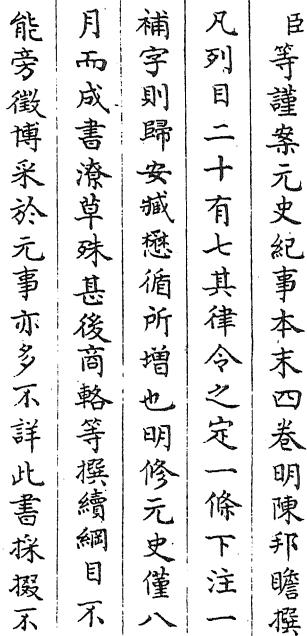 臣等謹案元史紀事本末四卷明陳邦瞻撰
凡列目二十有七其律令之定一條下注一
補字則歸安臧懋循所増也明修元史僅八
月而成書潦草殊甚後商輅等撰續綱目不
能旁徵博采於元事亦多不詳此書採掇不